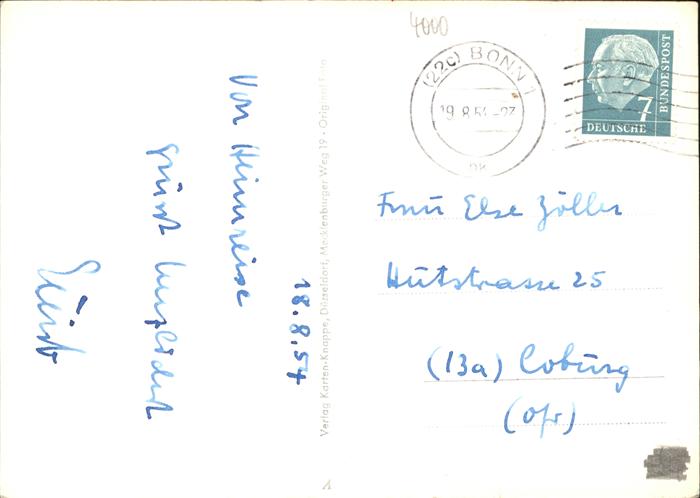 4000
(22c) BONN 1
19.8.54-23
7
DEUTSCHE
BUNDESPOST
18.8.54
Von Heimreise
grüsst herzlichst
Verlag Karten-Knappe, Düsseldorf, Mecklenburger Weg 19 - Original Foto
Frau Else Zöller
Hutstrasse 25
(13a) Coburg
(Ofr)